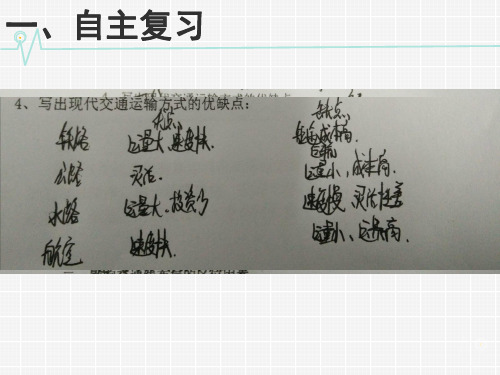 一、自主复习
4、写出现代交通运输方式的优缺点：
优点 缺点
铁路 运量大、速度快. 成本高.
公路 灵活. 运量小，成本高.
水路 运量大、投资少 速度慢、灵活性差
航空 速度快. 运量小、运费高.